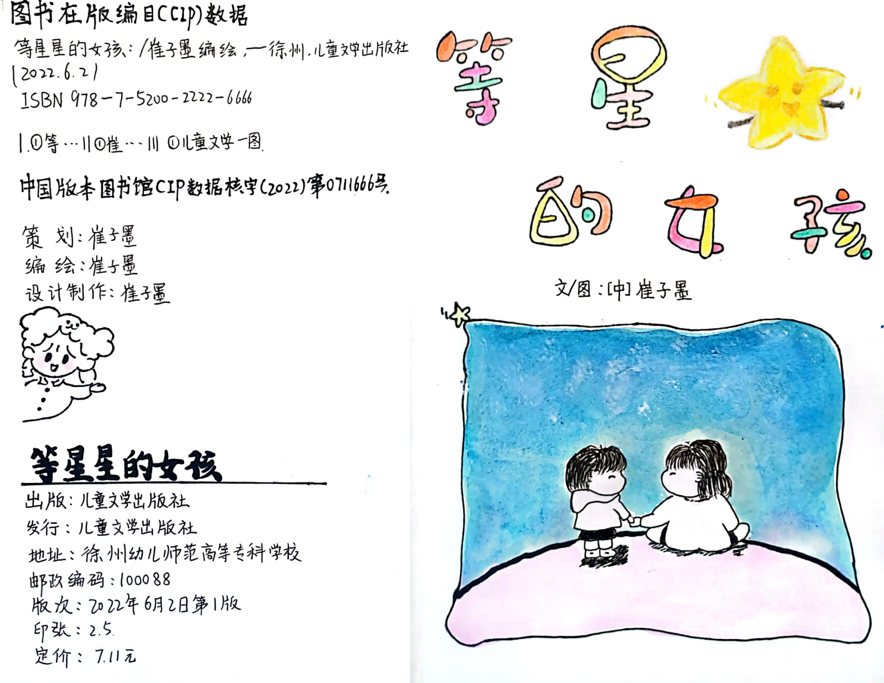 图书在版编目(CCIP)数据
等星星的女孩:/崔子墨编绘.—徐州.儿童文学出版社
(2022.6.2)
ISBN 978-7-5200-2222-6666
I.①等…II①崔…III ①儿童文学—图
中国版本图书馆CIP数据核字(2022)第0711666号.
策 划:崔子墨
编 绘:崔子墨
设计制作:崔子墨
等星星的女孩
出版:儿童文学出版社
发行:儿童文学出版社
地址:徐州幼儿师范高等专科学校
邮政编码:100088
版次:2022年6月2日第1版
印张:2.5.
定价:7.11元
等星
的女孩
文/图:[中]崔子墨